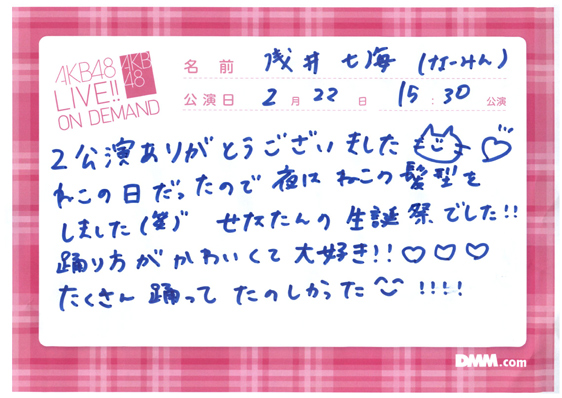 AKB48
LIVE!!
ON DEMAND
AKB
48
名前 浅井七海 (なーみん)
公演日 2月22日 15:30公演
2公演ありがとうございました
ねこの日だったので夜はねこの髪型を
しました(笑)" せなたんの生誕祭でした!!
踊り方がかわいくて大好き!! ♡♡♡
たくさん踊ってたのしかった !!!!
DMM.com